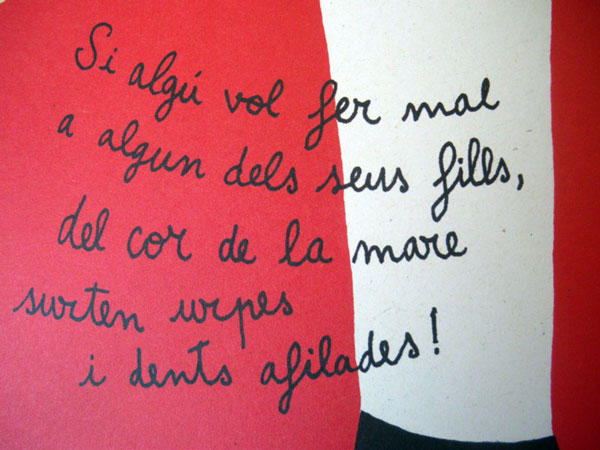 Si algú vol fer mal
a algun dels seus fills,
del cor de la mare
surten urpes
i dents afilades!